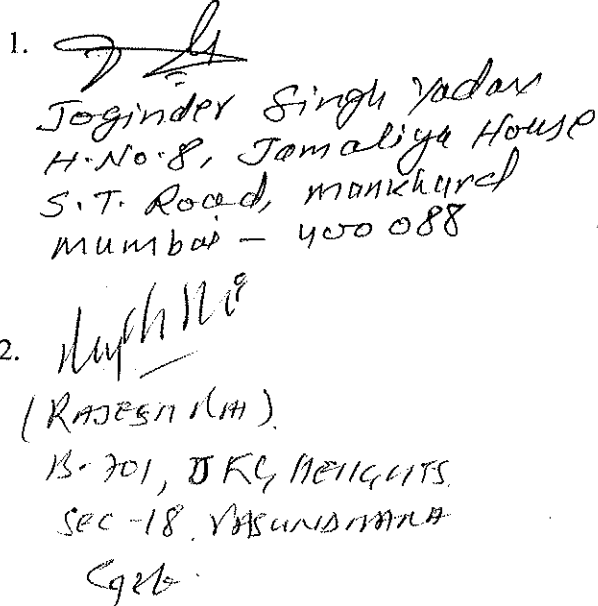 1.
Joginder Singh Yadav
H.No.8, Jamaliya House
S.T. Road, mankhurd
mumbai - 400 088
2.
(RAJESH RAI)
B-701, JKG HEIGHTS
SEC-18 VASUNDHARA